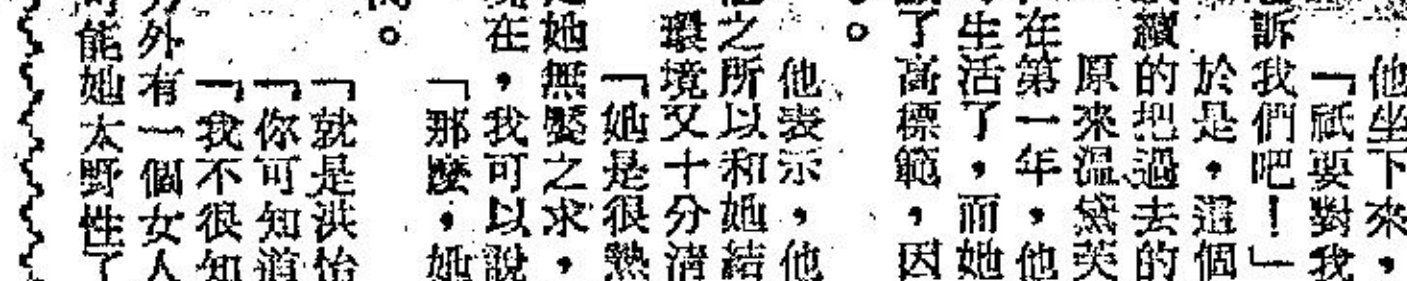 他坐下來，
「祇要對我
訴我們吧！」
於是，這個
續的把過去的
原來溫黛芙
在第一年，他
生活了，而她
了高標範，因
。
他表示，他
之所以和她結
環境又十分清
「她是很熟
她無饜之求，
在，我可以說
「那麼，她
。
「就是洪怡
「你可知道
「我不很知
外有一個女人
能她太野性了